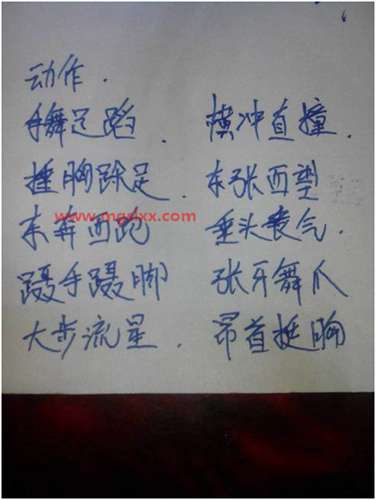 动作.
手舞足蹈 横冲直撞.
捶胸跺足 东张西望
www.mgsixx.com
东奔西跑 垂头丧气.
蹑手蹑脚 张牙舞爪
大步流星. 昂首挺胸